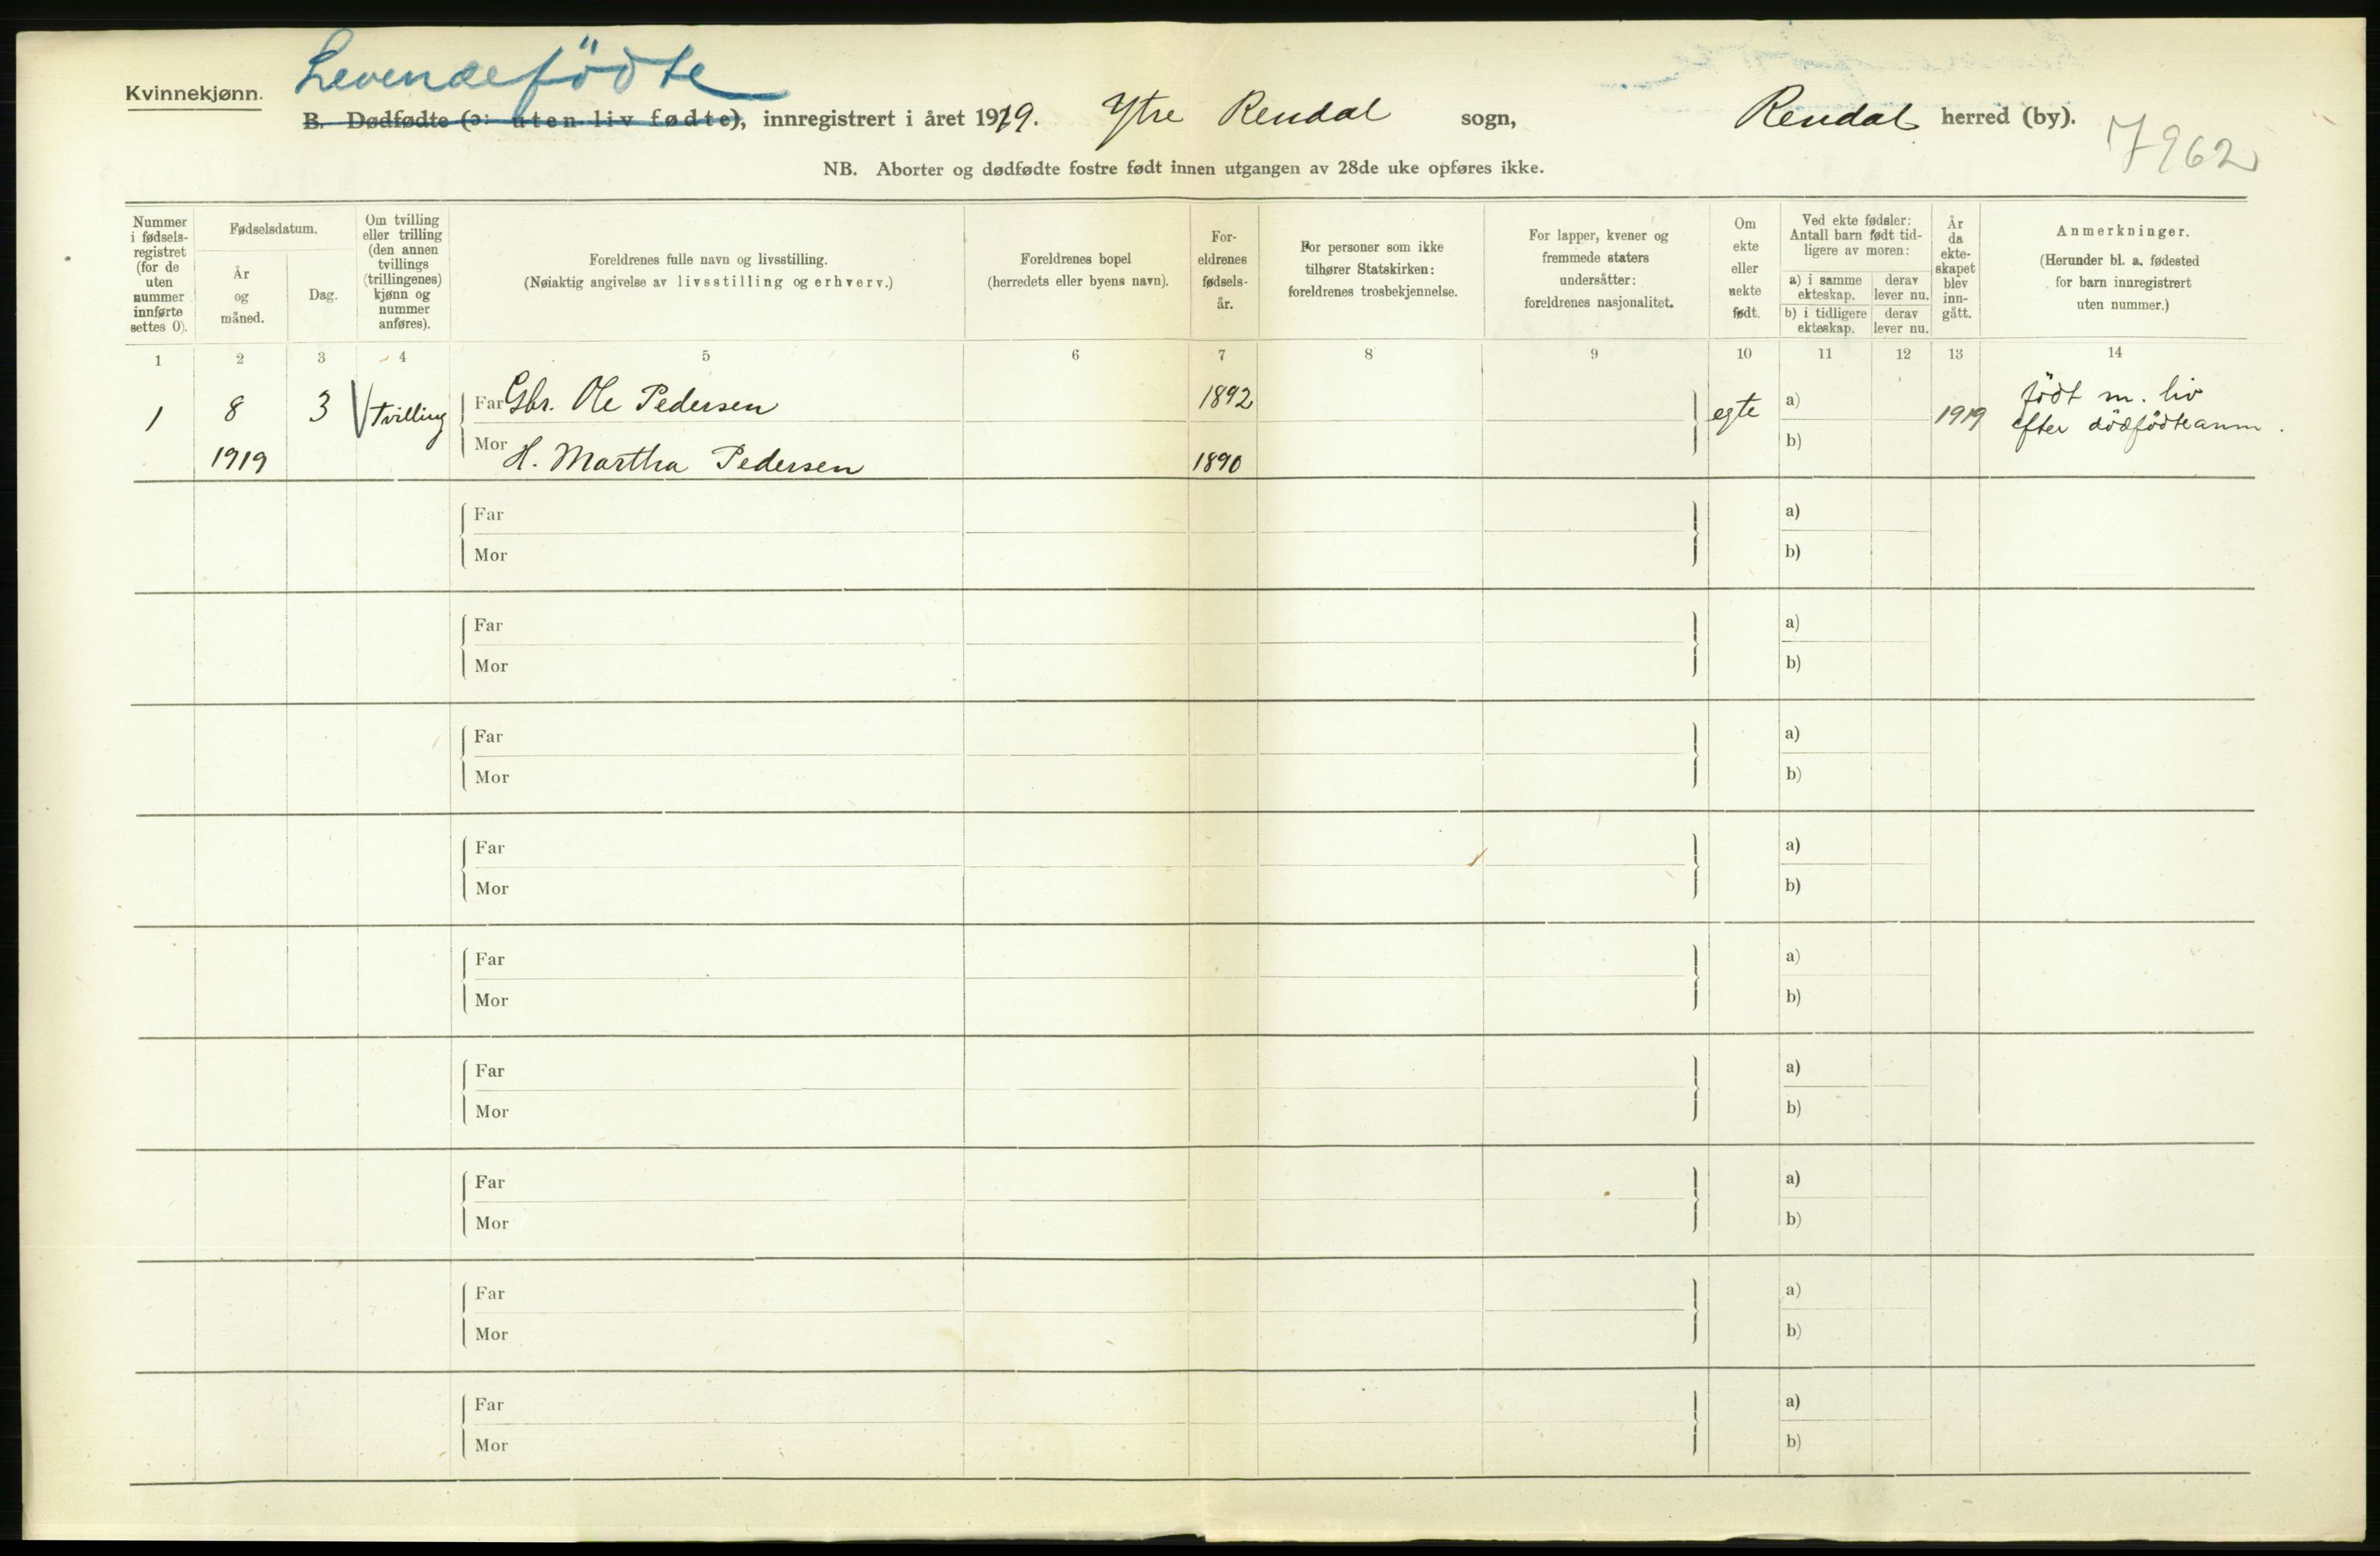 Levendefödte
Kvinnekjønn.
B. Dødfødte (ɔ: uten liv fødte), innregistrert i året 1919. Ytre Rendal sogn, Rendal herred (by). 7962
NB. Aborter og dødfødte fostre født innen utgangen av 28de uke opføres ikke.
Nummer i fødsels-registret (for de uten nummer innførte settes 0).
Fødselsdatum.
År og måned.
Dag.
Om tvilling eller trilling (den annen tvillings (trillingenes) kjønn og nummer anføres).
Foreldrenes fulle navn og livsstilling.
(Nøiaktig angivelse av livsstilling og erhverv.)
Foreldrenes bopel
(herredets eller byens navn).
For-eldrenes fødsels-år.
For personer som ikke tilhører Statskirken: foreldrenes trosbekjennelse.
For lapper, kvener og fremmede staters undersåtter: foreldrenes nasjonalitet.
Om ekte eller uekte født.
Ved ekte fødsler: Antall barn født tid-ligere av moren:
a) i samme ekteskap.
derav lever nu.
b) i tidligere ekteskap.
derav lever nu.
År da ekte-skapet blev inn-gått.
Anmerkninger.
(Herunder bl. a. fødested for barn innregistrert uten nummer.)
1 2 3 4 5 6 7 8 9 10 11 12 13 14
1 8 3 Tvilling Far Gbr. Ole Pedersen 1892 egte a) 1919 födt m. liv
efter dödfödteanm.
1919 Mor H. Martha Pedersen 1890 b)
Far a)
Mor b)
Far a)
Mor b)
Far a)
Mor b)
Far a)
Mor b)
Far a)
Mor b)
Far a)
Mor b)
Far a)
Mor b)
Far a)
Mor b)
Far a)
Mor b)